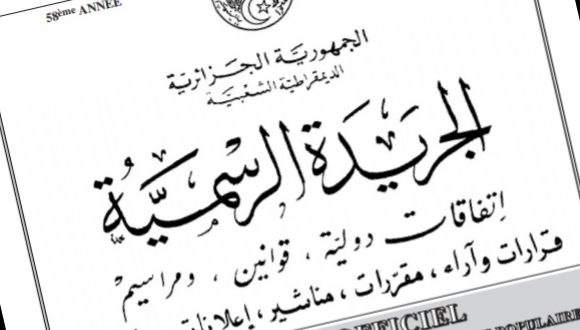 58ème ANNEE
الجمهورية الجزائرية
الديمقراطية الشعبية
الجريدة الرسمية
اتفاقات دولية ، قوانين ، ومراسيم
قرارات وآراء ، مقررات ، مناشير ، إعلانات
OFFICIEL
POPULAIRE